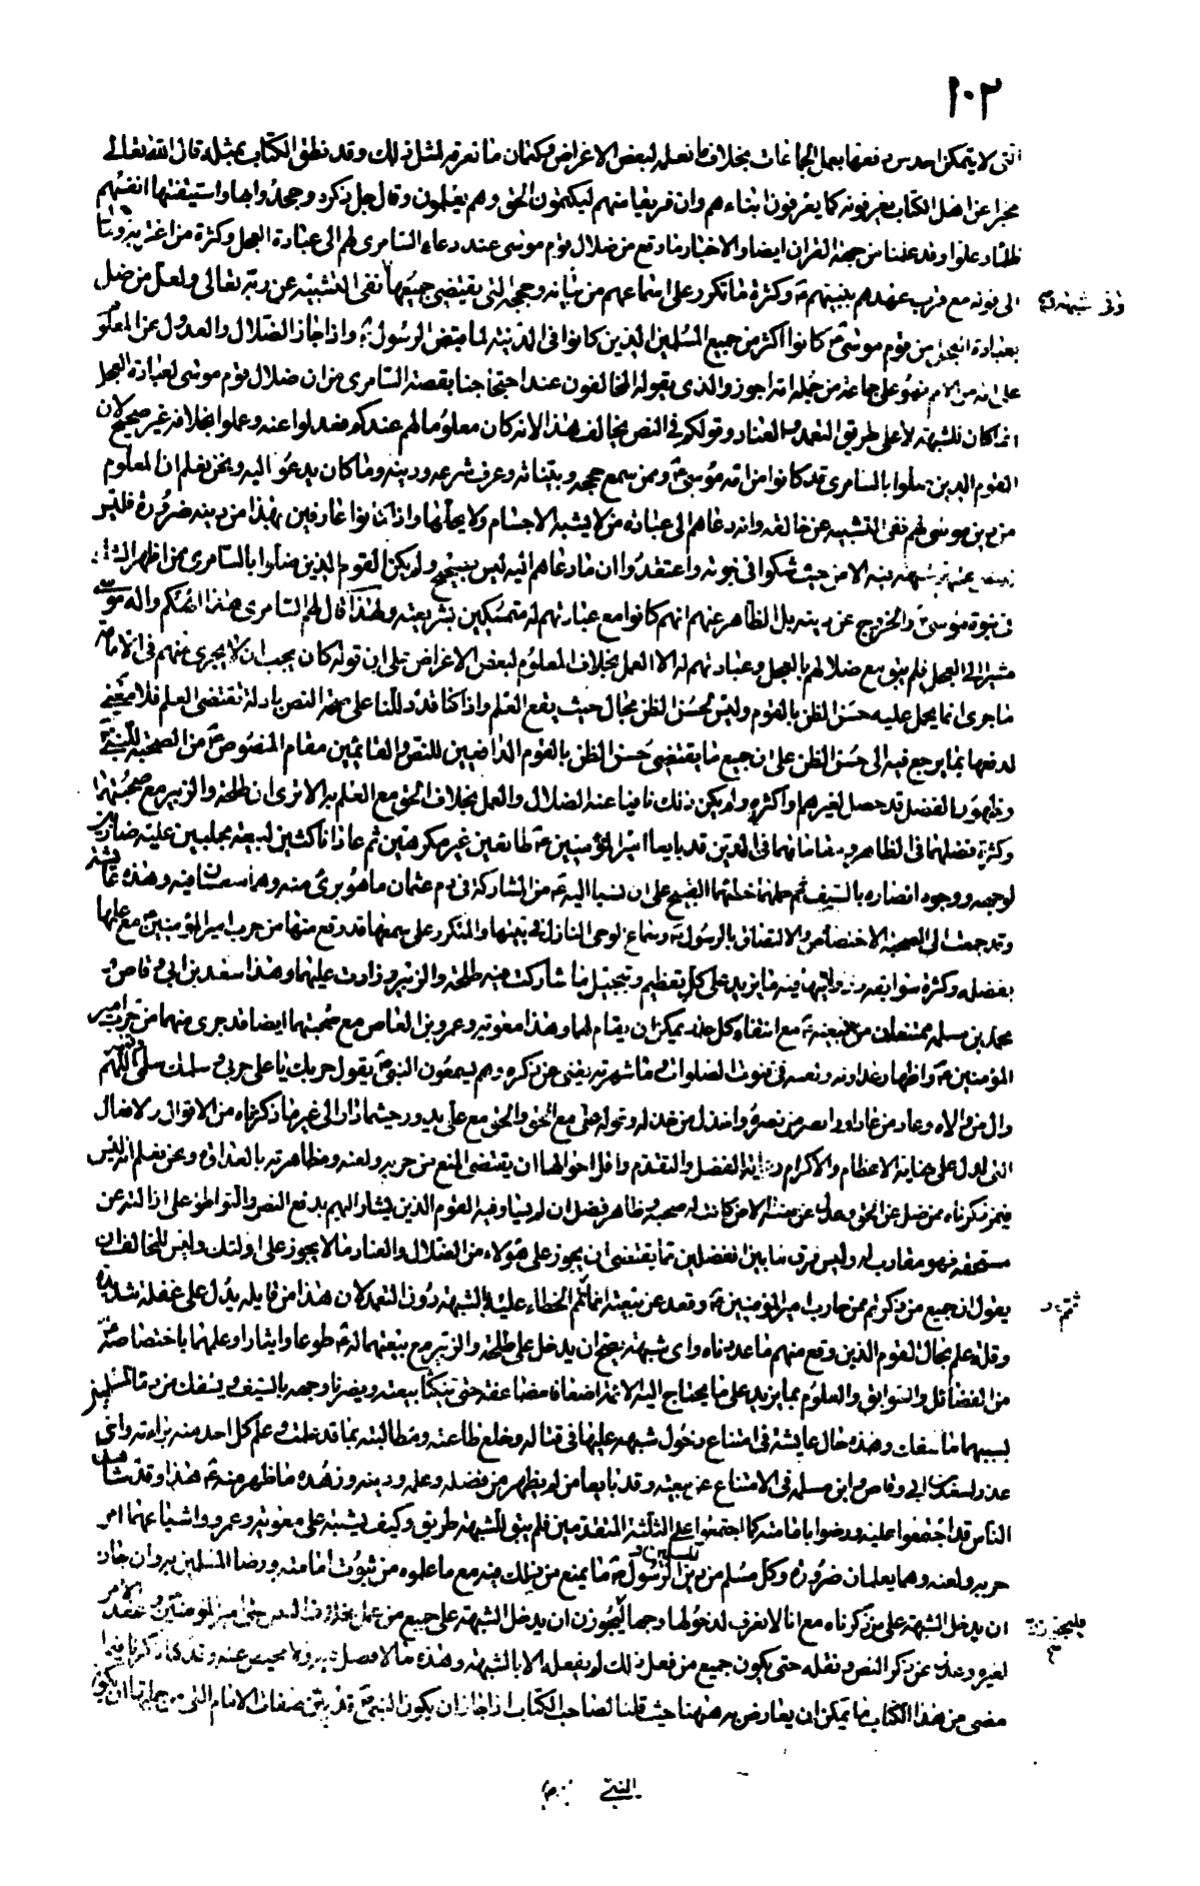 ١٠٢
التي لا يتمكن احد من دفعها بعمل الجماعات بخلاف ما نعلمه لبعض الاغراض وكتمان ما تعرفه لمثل ذلك وقد نطق الكتاب بمثله قال الله تعالى
مخبرا عن اهل الكتاب يعرفونه كما يعرفون ابناءهم وان فريقا منهم ليكتمون الحق وهم يعلمون وقال جل ذكره وجحدوا بها واستيقنتها انفسهم
ظلما وعلوا وقد علمنا من جهة القران ايضا والاخبار ما وقع من ضلال قوم موسى عند دعاء السامرى لهم الى عبادة العجل وكثرة من اغتر به ودعا
الى قوته مع قرب عهدهم بنبيهم ع وكثرة ما تكرر على اسماعهم من بيانه وحججه التي يقتضى جميعها نفى التشبيه عن ربه تعالى ولعل من ضل
بعبادة العجل من قوم موسى ع كانوا اكثر من جميع المسلمين الذين كانوا في المدينة لما قبض الرسول ص واذا جاز الضلال والعدول عن المعلوم
على امة من الامم فهو على جماعة من جملة امة اجوز والذى يقوله المخالفون عند احتجاجنا بقصة السامرى من ان ضلال قوم موسى لعبادة العجل
انما كان للشبهة لا على طريق التعمد والعناد وقولكم في النص بخالف هذا لانه كان معلوما لهم عندكم فعدلوا عنه وعملوا بخلافه غير صحيح لان
القوم الذين ضلوا بالسامرى قد كانوا من امة موسى ع وممن سمع حججه وبيناته وعرف شرعه ودينه وما كان يدعو اليه ونحن نعلم ان المعلوم
من دين موسى لهم نفى التشبيه عن خالقه وانه دعاهم الى عبادة من لا يشبه الاجسام ولا يحلها واذا كانوا عارفين بهذا من دينه ضرورة فليس
يدخل عليهم شبهة فيه الا من حيث شكوا في نبوته واعتقدوا ان ما دعاهم اليه ليس بصحيح ولم يكن القوم الذين ضلوا بالسامرى ممن اظهر الشك
في نبوة موسى ع والخروج عن دينه بل الظاهر عنهم انهم كانوا مع عبادتهم له متمسكين بشريعته ولهذا قال لهم السامرى هذا الهكم واله موسى
مشيرا الى العجل فلم يبق مع ضلالهم بالعجل وعبادتهم له الا العمل بخلاف المعلوم لبعض الاغراض على ان قوله كان يجب ان لا يجرى منهم في الامامة
ما جرى انما يحمل عليه حسن الظن بالقوم وليس لحسن الظن مجال حيث يقع العلم واذا كنا قد دللنا على صحة النص بادلة تقتضى العلم فلا معنى
لدفعها بما يرجع فيه الى حسن الظن على ان جميع ما يقتضى حسن الظن بالقوم الدافعين للنص والقائمين مقام المنصوص ع من الصحبة للنبي ص
وظهور الفضل قد حصل لغيرهم واكثره ولم يكن ذلك نافيا عنه الضلال والعمل بخلاف الحق مع العلم به الا ترى ان طلحة والزبير مع صحبتهما
وكثرة فضلهما في الظاهر ومقاماتهما في الدين قد بايعا امير المؤمنين ع طائعين غير مكرهين ثم عادا ناكثين لبيعته مجلبين عليه ضاربين
لوجهه ووجوه انصاره بالسيف ثم حملهما خطئهما القبيح على ان نسبا اليه ع من المشاركة في دم عثمان ما هو برئ منه وهما سعيا فيه وهذه عائشة
وقد جمعت الى الصحبة الاختصاص والالتصاق بالرسول ص وسماع الوحي النازل في بيتها والمتكرر على سمعها قد وقع منها من حرب امير المؤمنين ع مع علمها
بفضله وكثرة سوابقه وروايتها فيه ما يزيد على كل تعظيم وتبجيل ما شاركت فيه طلحة والزبير وزادت عليهما وهذا سعد بن ابى وقاص و
محمد بن مسلمة ممتنعان من بيعته ع مع انتفاء كل عذر يمكن ان يقام لهما وهذا معوية وعمرو بن العاص مع صحبتهما ايضا قد جرى منهما من حرب امير
المؤمنين ع واظهار عداوته ولعنه في قنوت الصلوات ما شهرته يغنى عن ذكره وهم يسمعون النبي ص يقول حربك يا على حربى وسلمك سلمى اللهم
وال من والاه وعاد من عاداه وانصر من نصره واخذل من خذله وقوله على مع الحق والحق مع على يدور حيثما دار الى غير ما ذكرناه من الاقوال والافعال
التي تدل على نهاية الاعظام والاكرام وغاية الفضل والتقدم واقل احوالها ان يقتضى المنع من حربه ولعنه ومظاهرته بالعداوة ونحن نعلم انه ليس
فيمن ذكرناه ممن ضل عن الحق وعدل عن سننه الا من كانت له صحبة وظاهر فضل ان لم يساو فيه القوم الذين يشار اليهم بدفع النص والتواطؤ على ازالته عن
مستحقه فهو مقارب له وليس فرق ما بين الفضلين مما يقتضى ان يجوز على هؤلاء من الضلال والعناد ما لا يجوز على اولئك وليس للمخالف ان
يقول ان جميع من ذكرتم ممن حارب امير المؤمنين ع وقعد عن بيعته انما تم الخطاء عليه بالشبهة دون التعمد لان هذا من قايله يدل على غفلة شديدة
وقلة علم بحال القوم الذين وقع منهم ما عددناه واى شبهة يصح ان يدخل على طلحة والزبير مع بيعتهما له ع طوعا وايثارا وعلمهما باختصاصه ع
من الفضائل والسوابق والعلوم بما يزيد على ما يحتاج اليه الائمة اضعافا مضاعفة حتى ينكثا بيعته ويضربا وجهه بالسيف ويسفك من دماء المسلمين
بسببهما ما سفك وهذه حال عايشة في امتناع دخول شبهة عليها في قتاله وخلع طاعته ومطالبته بما قد علمت وعلم كل احد منه براءته واى
عذر لسعد بن ابى وقاص وابن مسلمة في الامتناع عن بيعته وقد بايعا من لم يظهر من فضله وعلمه ودينه وزهده ما ظهر منه ع هذا وقد شاهدا
الناس قد اجتمعوا عليه ورضوا بامامته كما اجتمعوا على الثلثة المتقدمين فلم يبق للشبهة طريق وكيف يشتبه على معوية وعمرو واشياعهما امر
حربه ولعنه وهما يعلمان ضرورة وكل مسلم من دين الرسول ص ما يمنع من ذلك فيه مع ما علموه من ثبوت امامته ورضا المسلمين به وان جاز
ان يدخل الشبهة على من ذكرناه مع انا لا نعرف لدخولها وجها ليجوزن ان يدخل الشبهة على جميع من عمل بخلاف النص على امير المؤمنين ع فعقد الامر
لغيره وعدل عن ذكر النص ونقله حتى يكون جميع من فعل ذلك لم يفعله الا بالشبهة وهذه ما لا فصل فيه ولا محيص عنه وقد كنا ذكرنا فيما
مضى من هذا الكتاب ما يمكن ان يعارض به ههنا حيث قلنا لصاحب الكتاب اذا جاز ان يكون النبي ص قد بين صفات الامام التي من جملتها ان يكون
النبي